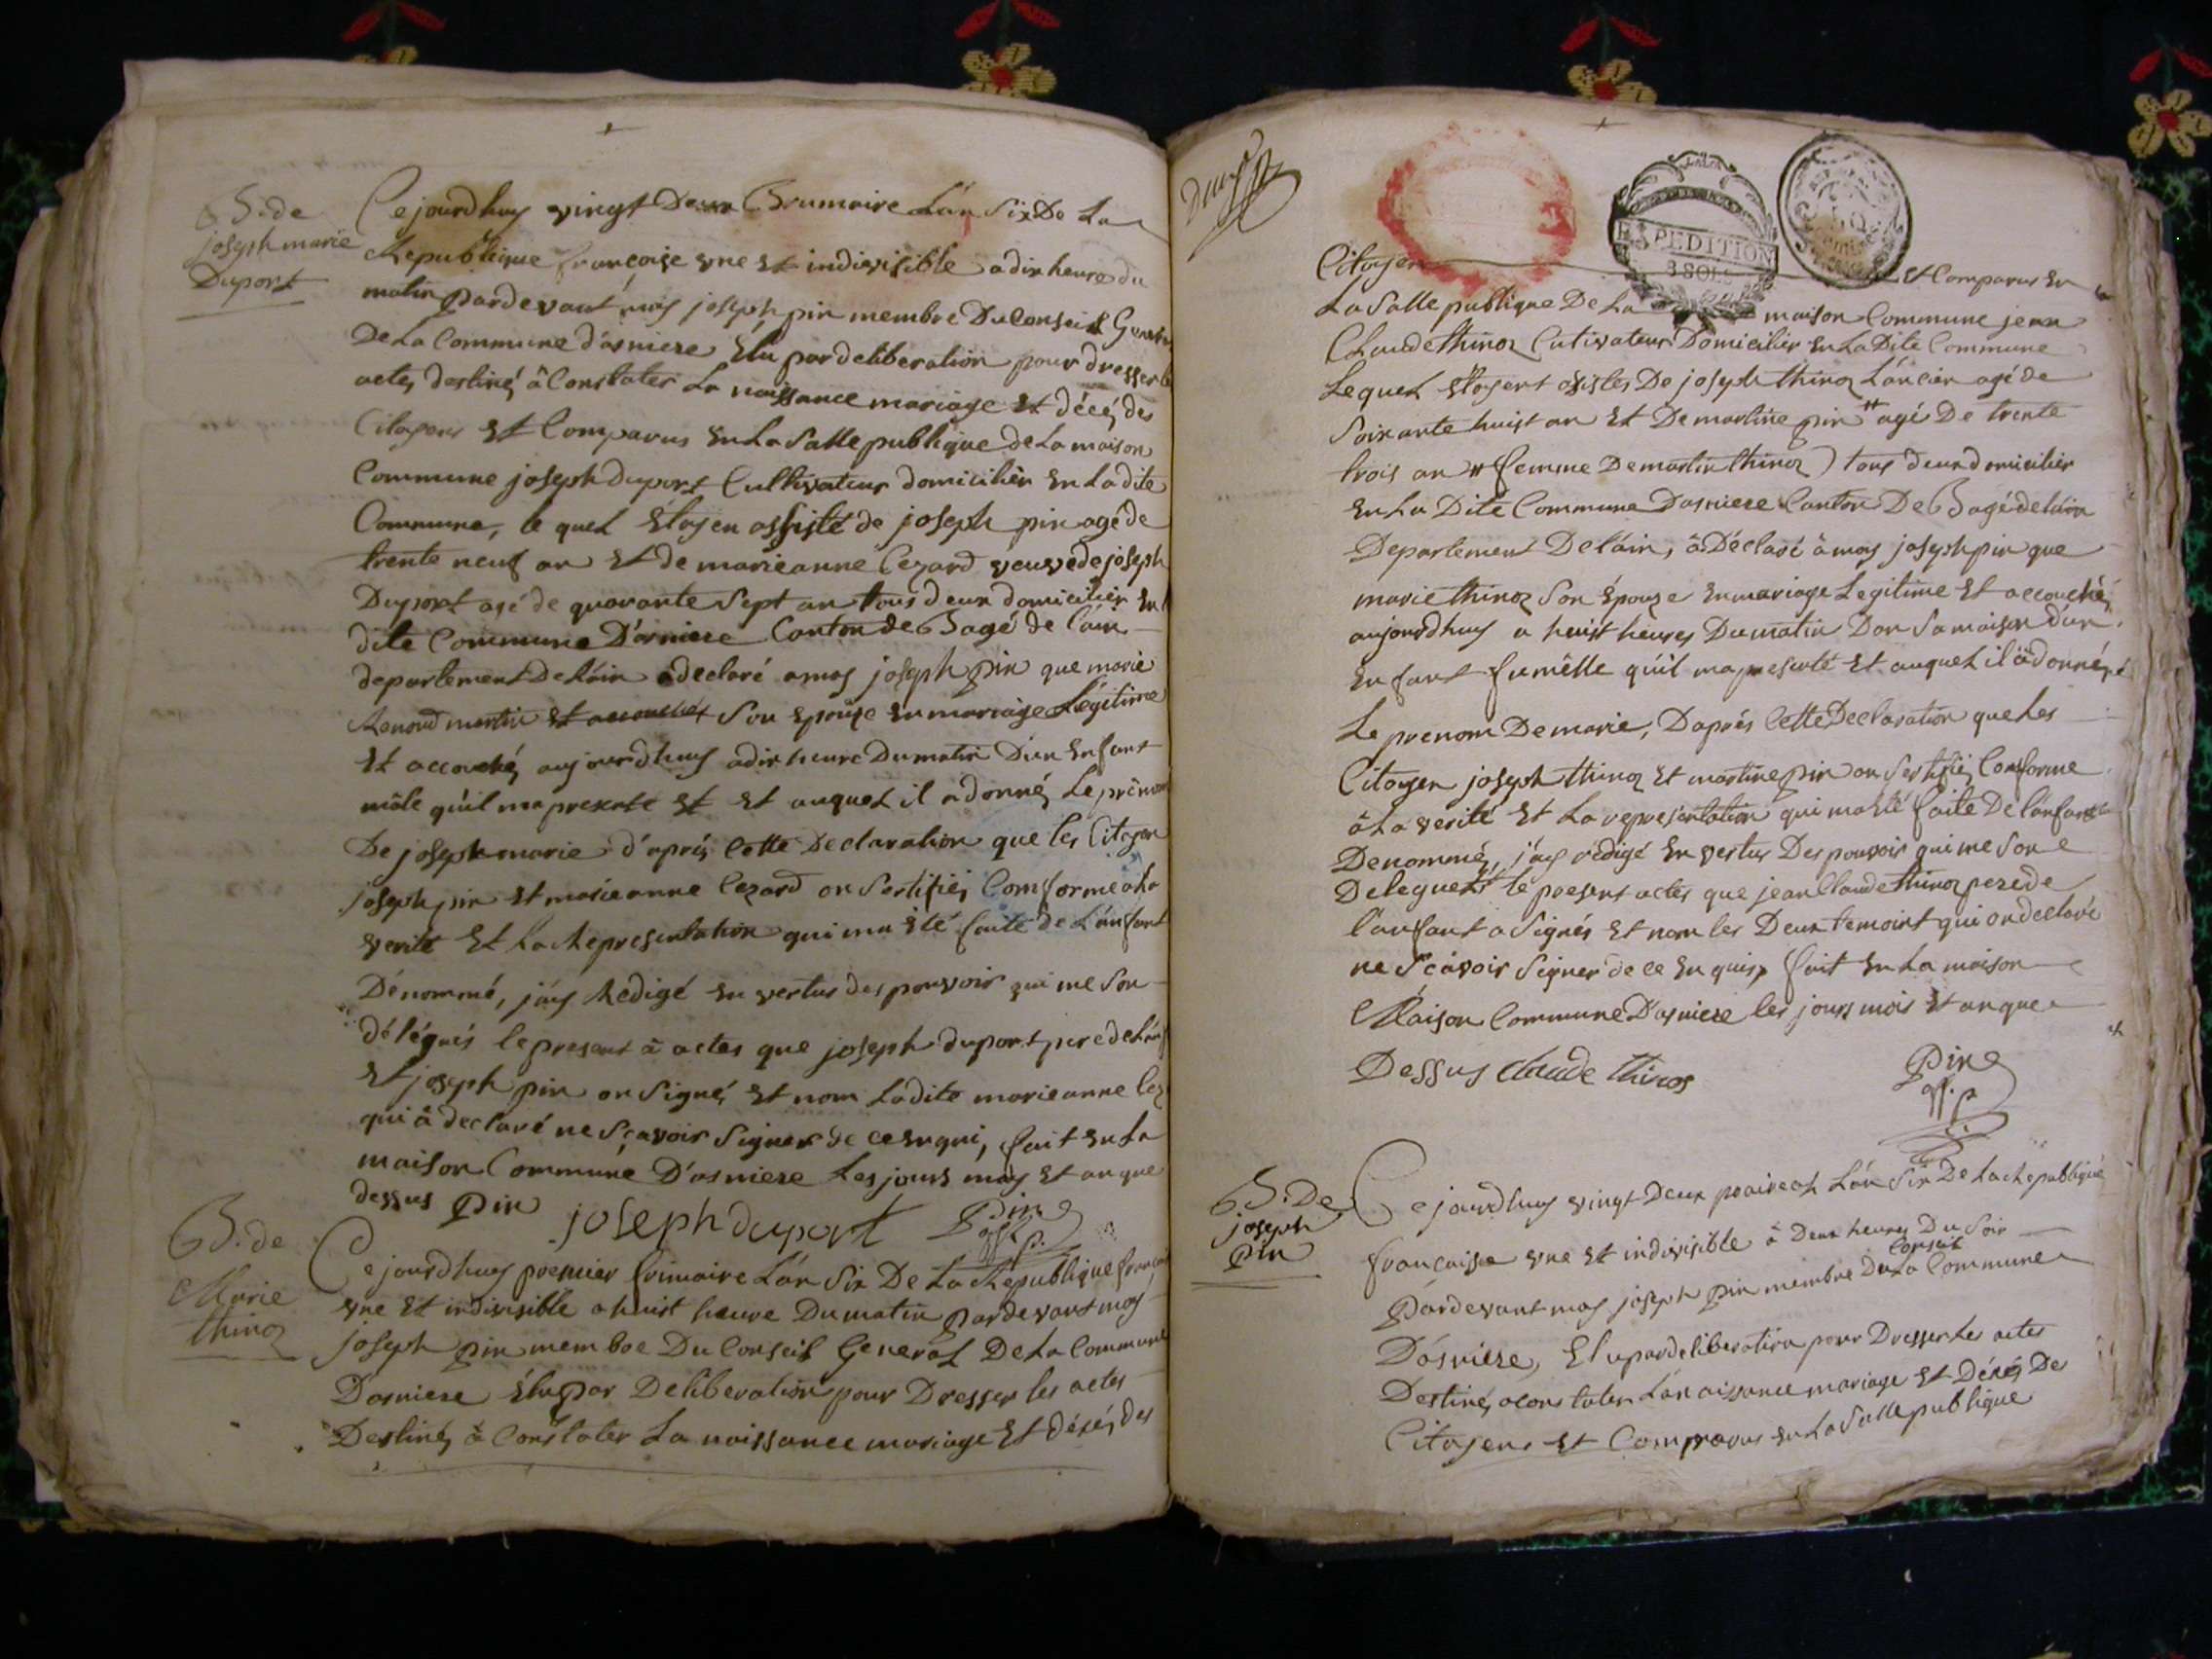 B. de
joseph marie
Duport
Ce jourd huy vingt Deux Brumaire L'án Six De La
Republique françoise vne Et indivisible a dix heure du
matin pardevant moy joseph pin membre Du Conseil General
De La Commune d'ásniere Elu par deliberation pour dresser
actes destinés â Constater La naissance mariage Et décé des
Citoyens Et Comparus En La Salle publique de La maison
Commune joseph Duport Cultivateur domicilier En La dite
Commune, le quel Etoyen assisté de joseph pin agé de
trente neuf an Et de marieanne Cezard veuve de joseph
Duport agé de quarante Sept an tous deux domicilier En
dite Commune D'ásniere Canton de Bagé de l'ain
departement De l'áin a declaré a moy joseph pin que marie
Renoud martin Et accouchée Son Epouze En mariage Légitime
Et accouchéz aujourdhuy a dix heure Du matin D'un Enfant
mâle qu'il ma prezenté Et Et auquel il a donnéz Le prénom
De joseph marie d'aprés Cette Declaration que les Citoyen
joseph pin Et marieanne Cezard on Sertifiéz Comforme a La
verité Et La Representation qui ma Eté faite de L'ánfant
Dénommé, j'áy Redigé En vertus des pouvoir qui me Son
délégués le present â actes que joseph duport pere de L'ánf
Et joseph pin on Signé, Et nom Ladite marieanne Cez
qui â declaré ne Sçavoir Signer de ce Enqui, fait En La
maison Commune D'ásniere Les jours moy Et an que
dessus Pin joseph duport Pin
off. p.
B. de
Marie
thinoz
Ce jourdhuy premier frimaire L'án Six De La Republique française
vne Et indivisible a huist heure Du matin pardevant moy
joseph pin membre Du Conseil General De La Commune
D'asniere Elu par Deliberation pour Dresser les actes
Destinéz â Constater La naissance mariage Et décéz des
Citoyen Et Comparus En
EXPEDITION
3 SOLS
La Salle publique De La maison Commune jean
Claude thinoz Cutivateur Domicilier En La Dite Commune
Le quel Etoyent asistes De joseph thinoz L'áncien agé de
Soixante huist an Et De martine pin # agé De trente
trois an # (femme De martin thinoz) tous deux domicilier
En La Dite Commune Dasniere Canton De Bagé de l'áin
Departement De l'áin, â Déclaré â moy joseph pin que
marie thinoz Son Épouze En mariage Legitime Et accouchéz
aujourdhuy a huist heures Du matin Dan Sa maison d'un
Enfant fumêlle qu'il ma presenté Et auquel il â donnéz
Le prenom De marie, D'aprés Cette Declaration que Les
Citoyen joseph thinoz Et martine pin on Sertifiéz Comforme
â La verité Et La representation qui ma Eté faite De L'ánfant
Denomméz, j'áy rédigé En vertus Des pouvoir qui me Son
Delegués le present actes que jean Claude thinoz pere de
l'ánfant a Signés Et nom les Deux temoint qui on declaré
ne Sçavoir Signer de ce Enquis, fait En La maison
Maison Commune D'asniere les jours mois Et an que
Dessus claude thinoz
Pin
off. p
B. De
joseph
Pin
Ce jourdhuy vingt Deux praireal L'án Six De La Republique
française vne Et indivisible â Deux heures Du Soir
Pardevant moy joseph pin membre Du Conseil La Commune
D'ásniere, Elu par deliberation pour Dresser Les actes
Destinéz a Constater L'a naissance mariage Et Décéz De
Citoyens Et Comparus En La Salle publique